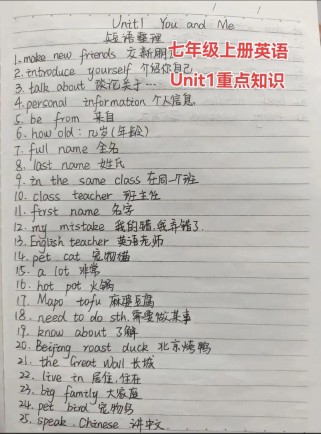 Unit1 You and Me
短语整理
七年级上册英语
Unit1重点知识
1.make new friends 交新朋
2.introduce yourself 介绍你自己
3. talk about 谈论关于…
4.personal information 个人信息
5. be from 来自
6. how old: 几岁(年龄)
7. full name 全名
8. last name 姓氏
9. in the same class 在同一个班
10. class teacher 班主任
11. first name 名字
12. my mistake 我的错,我弄错了
13.English teacher 英语老师
14. pet cat 宠物猫
15. a lot 非常
16. hot pot 火锅
17. Mapo tofu 麻婆豆腐
18. need to do sth.需要做某事
19. know about 了解
20. Beijing roast duck 北京烤鸭
21. the Great Wall 长城
22. live in 居住,住在
23. big family 大家庭
24. pet bird 宠物鸟
25. speak Chinese 讲中文